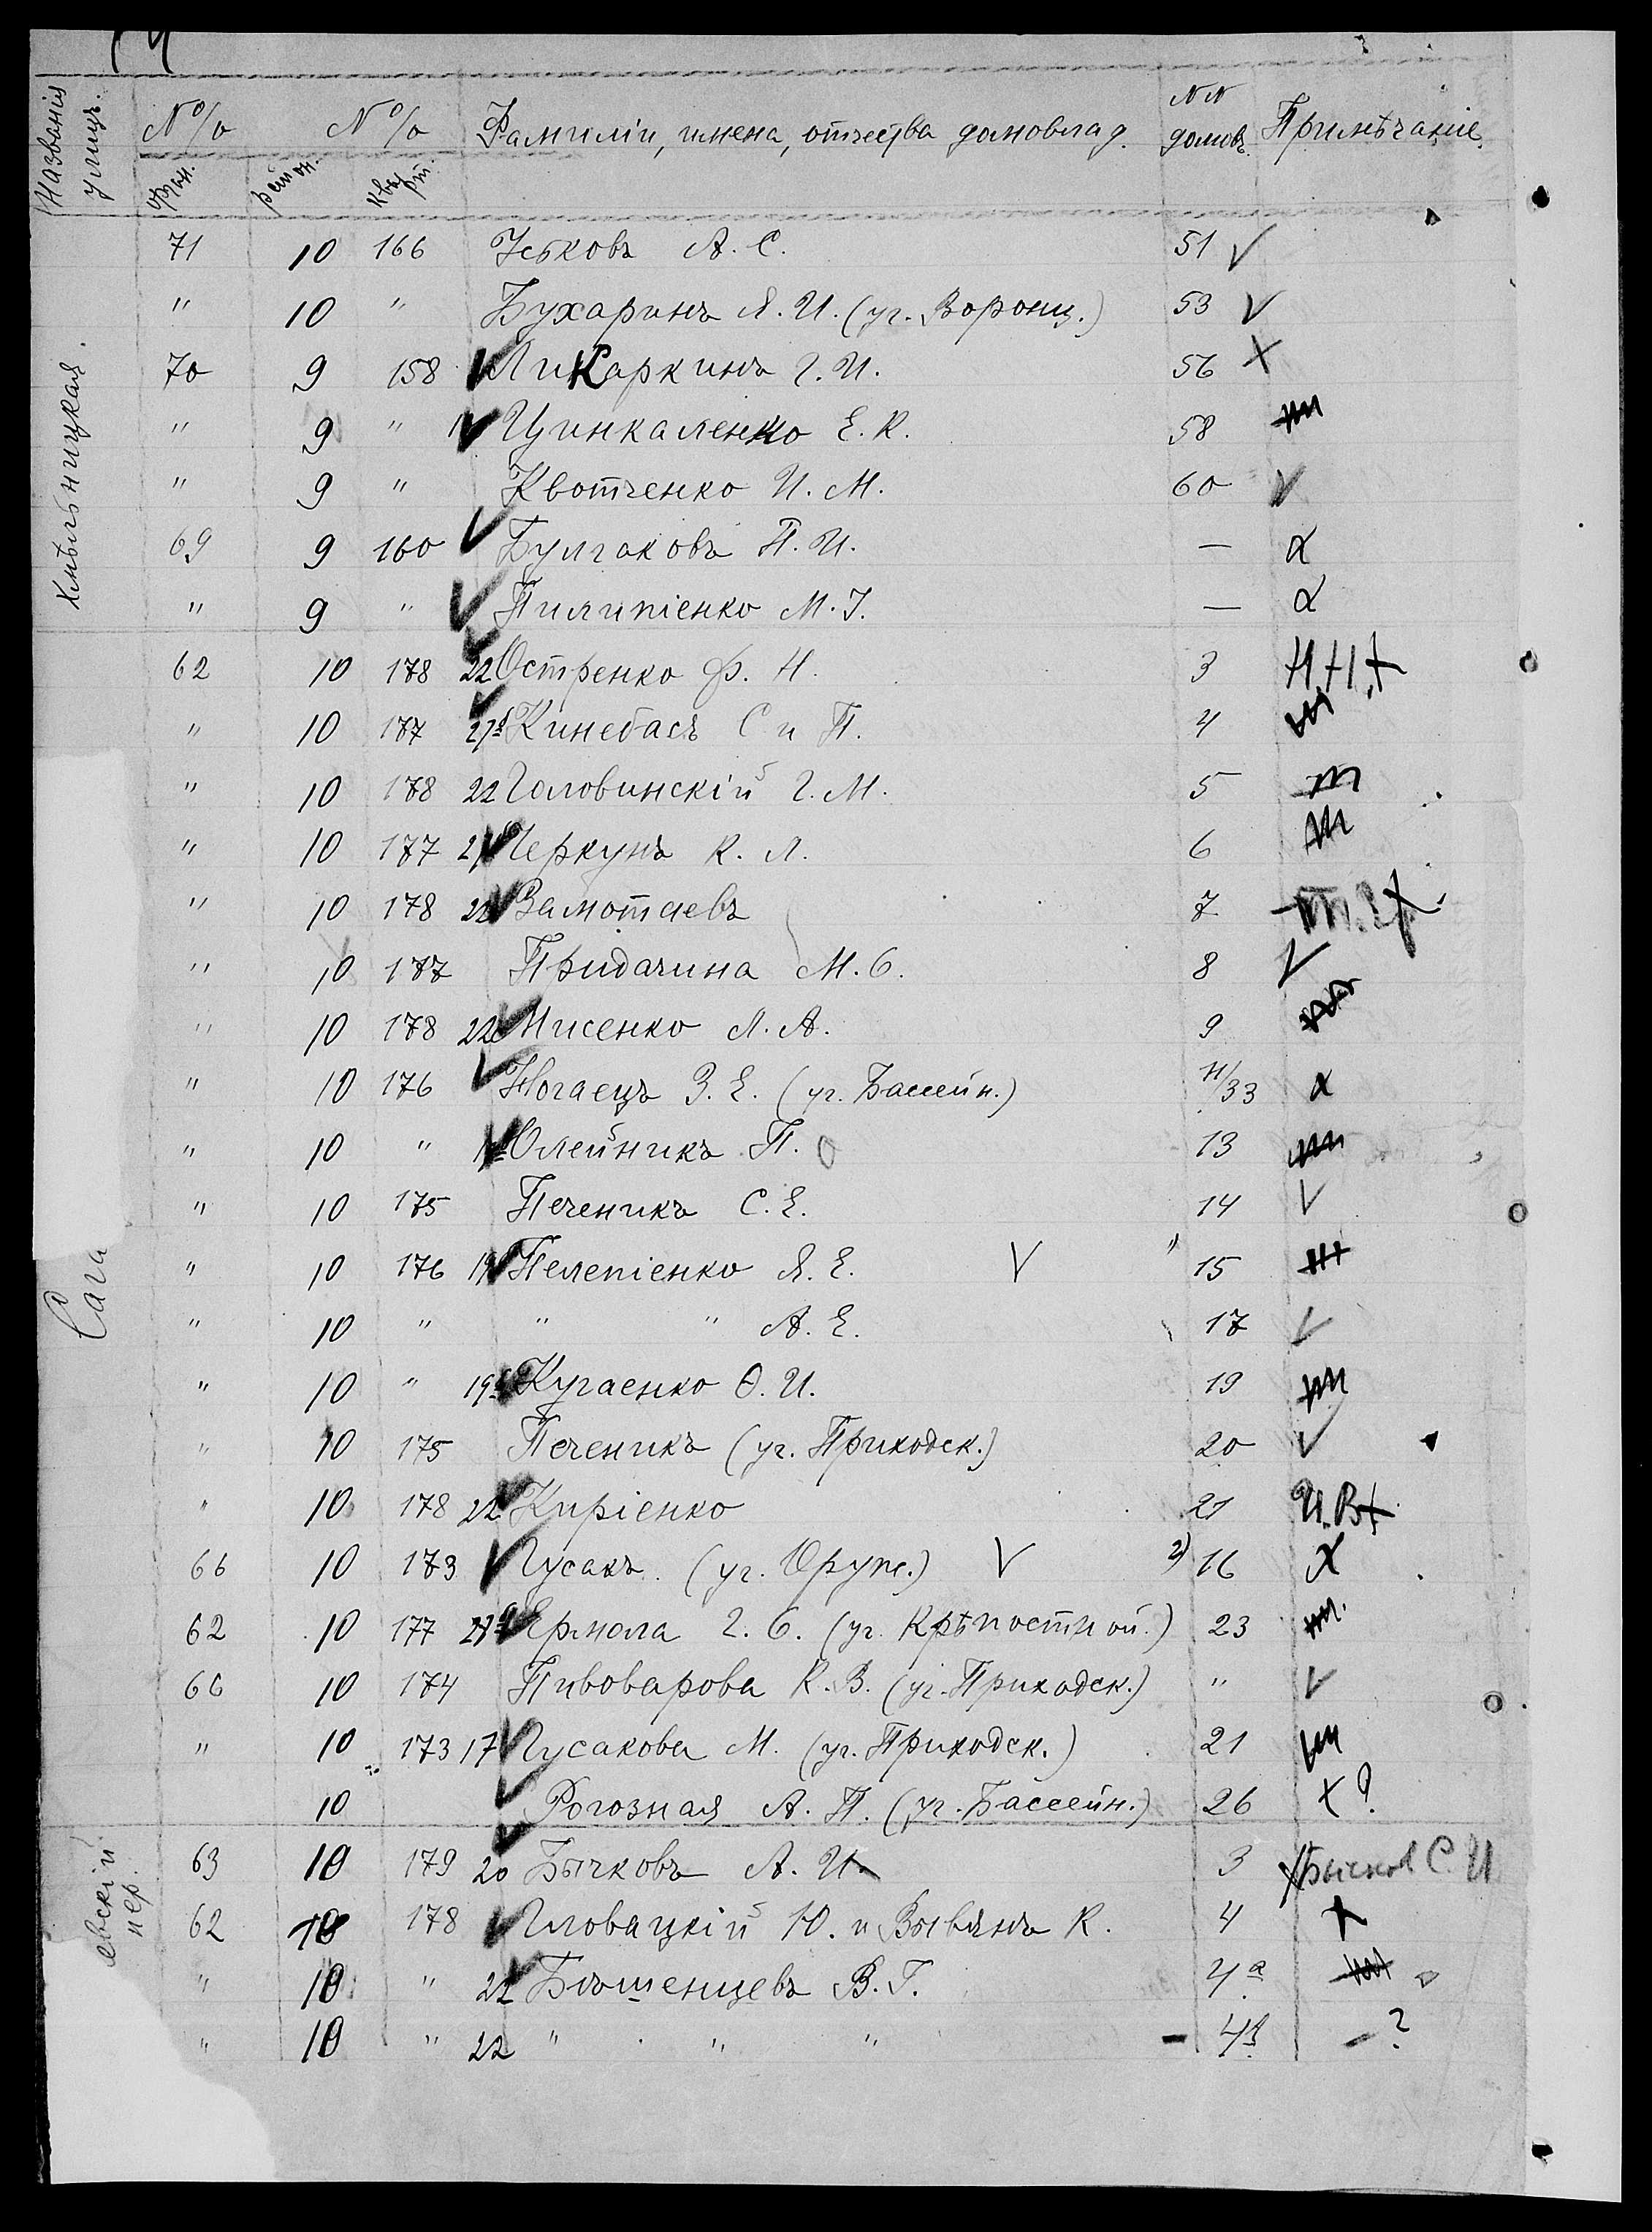 Названія улицъ. №/о №/о Фамиліи, имена, отчества домовлад. NN домовъ. Примѣчаніе.
район. кварт.
Хмѣльницкая.
71 10 166 Уськовъ А. С. 51 V
" 10 " Бухаринъ Я. И. (уг. Воронц.) 53 V
70 9 158 V Ликаркинъ Г. И. 56 X
" 9 " V Цинкаленко Е. К. 58
" 9 " Квотченко И. М. 60 V
69 9 160 V Булгаковъ П. И. — α
" 9 " V Пилипіенко М. І. — α
62 10 178 22 Остренко Ф. Н. 3
" 10 177 Кинебасъ С и П. 4
" 10 178 22 Головинскій Г. М. 5
" 10 177 Черкунъ К. Л. 6
" 10 178 22 Замотаевъ 7
" 10 177 Придачина М. С. 8 V
" 10 178 22 Мисенко Л. А. 9
" 10 176 V Ногаецъ З. Е. (уг. Бассейн.) 11/33 α
" 10 " Олейникъ П. О 13
" 10 175 Печеникъ С. Е. 14 V
Сага
" 10 176 19 Пелепіенко Я. Е. V " 15
" 10 " " " А. Е. 17 V
" 10 " 19 Кугаенко Ѳ. И. 19
" 10 175 Печеникъ (уг. Приходск.) 20 V
" 10 178 22 Киріенко 21 И. В. X
66 10 173 V Гусакъ. (уг. Оруж.) V 2) 16 X
62 10 177 Ермола Г. С. (уг. Крѣпостной.) 23
66 10 174 Пивоварова К. В. (уг. Приходск.) " V
" 10 173 17 Гусакова М. (уг. Приходск.) 21
10 V Рогозная А. П. (уг. Бассейн.) 26 X ?
евскій пер.
63 10 179 20 Бычковъ А. И. 3 Бычков С. И
62 10 178 V Гловацкій Ю. и Вывянъ К. 4 X
" 10 " 22 Блошенцевъ В. Г. 4а
" 10 " 22 " " " - 4 - ?